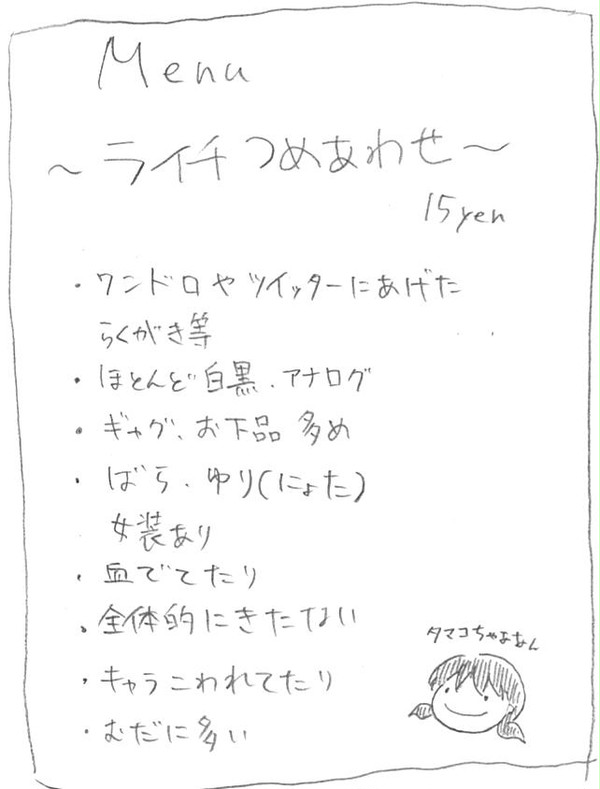 Menu
～ライチつめあわせ～
15yen
・ワンドロやツイッターにあげた
らくがき等
・ほとんど白黒、アナログ
・ギャグ、お下品多め
・ばら、ゆり(にょた)
女装あり
・血でてたり
・全体的にきたない
・キャラこわれてたり
・むだに多い
タマコちゃあん